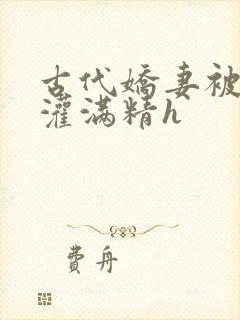 古代嬌妻被
灌滿精h
費舟